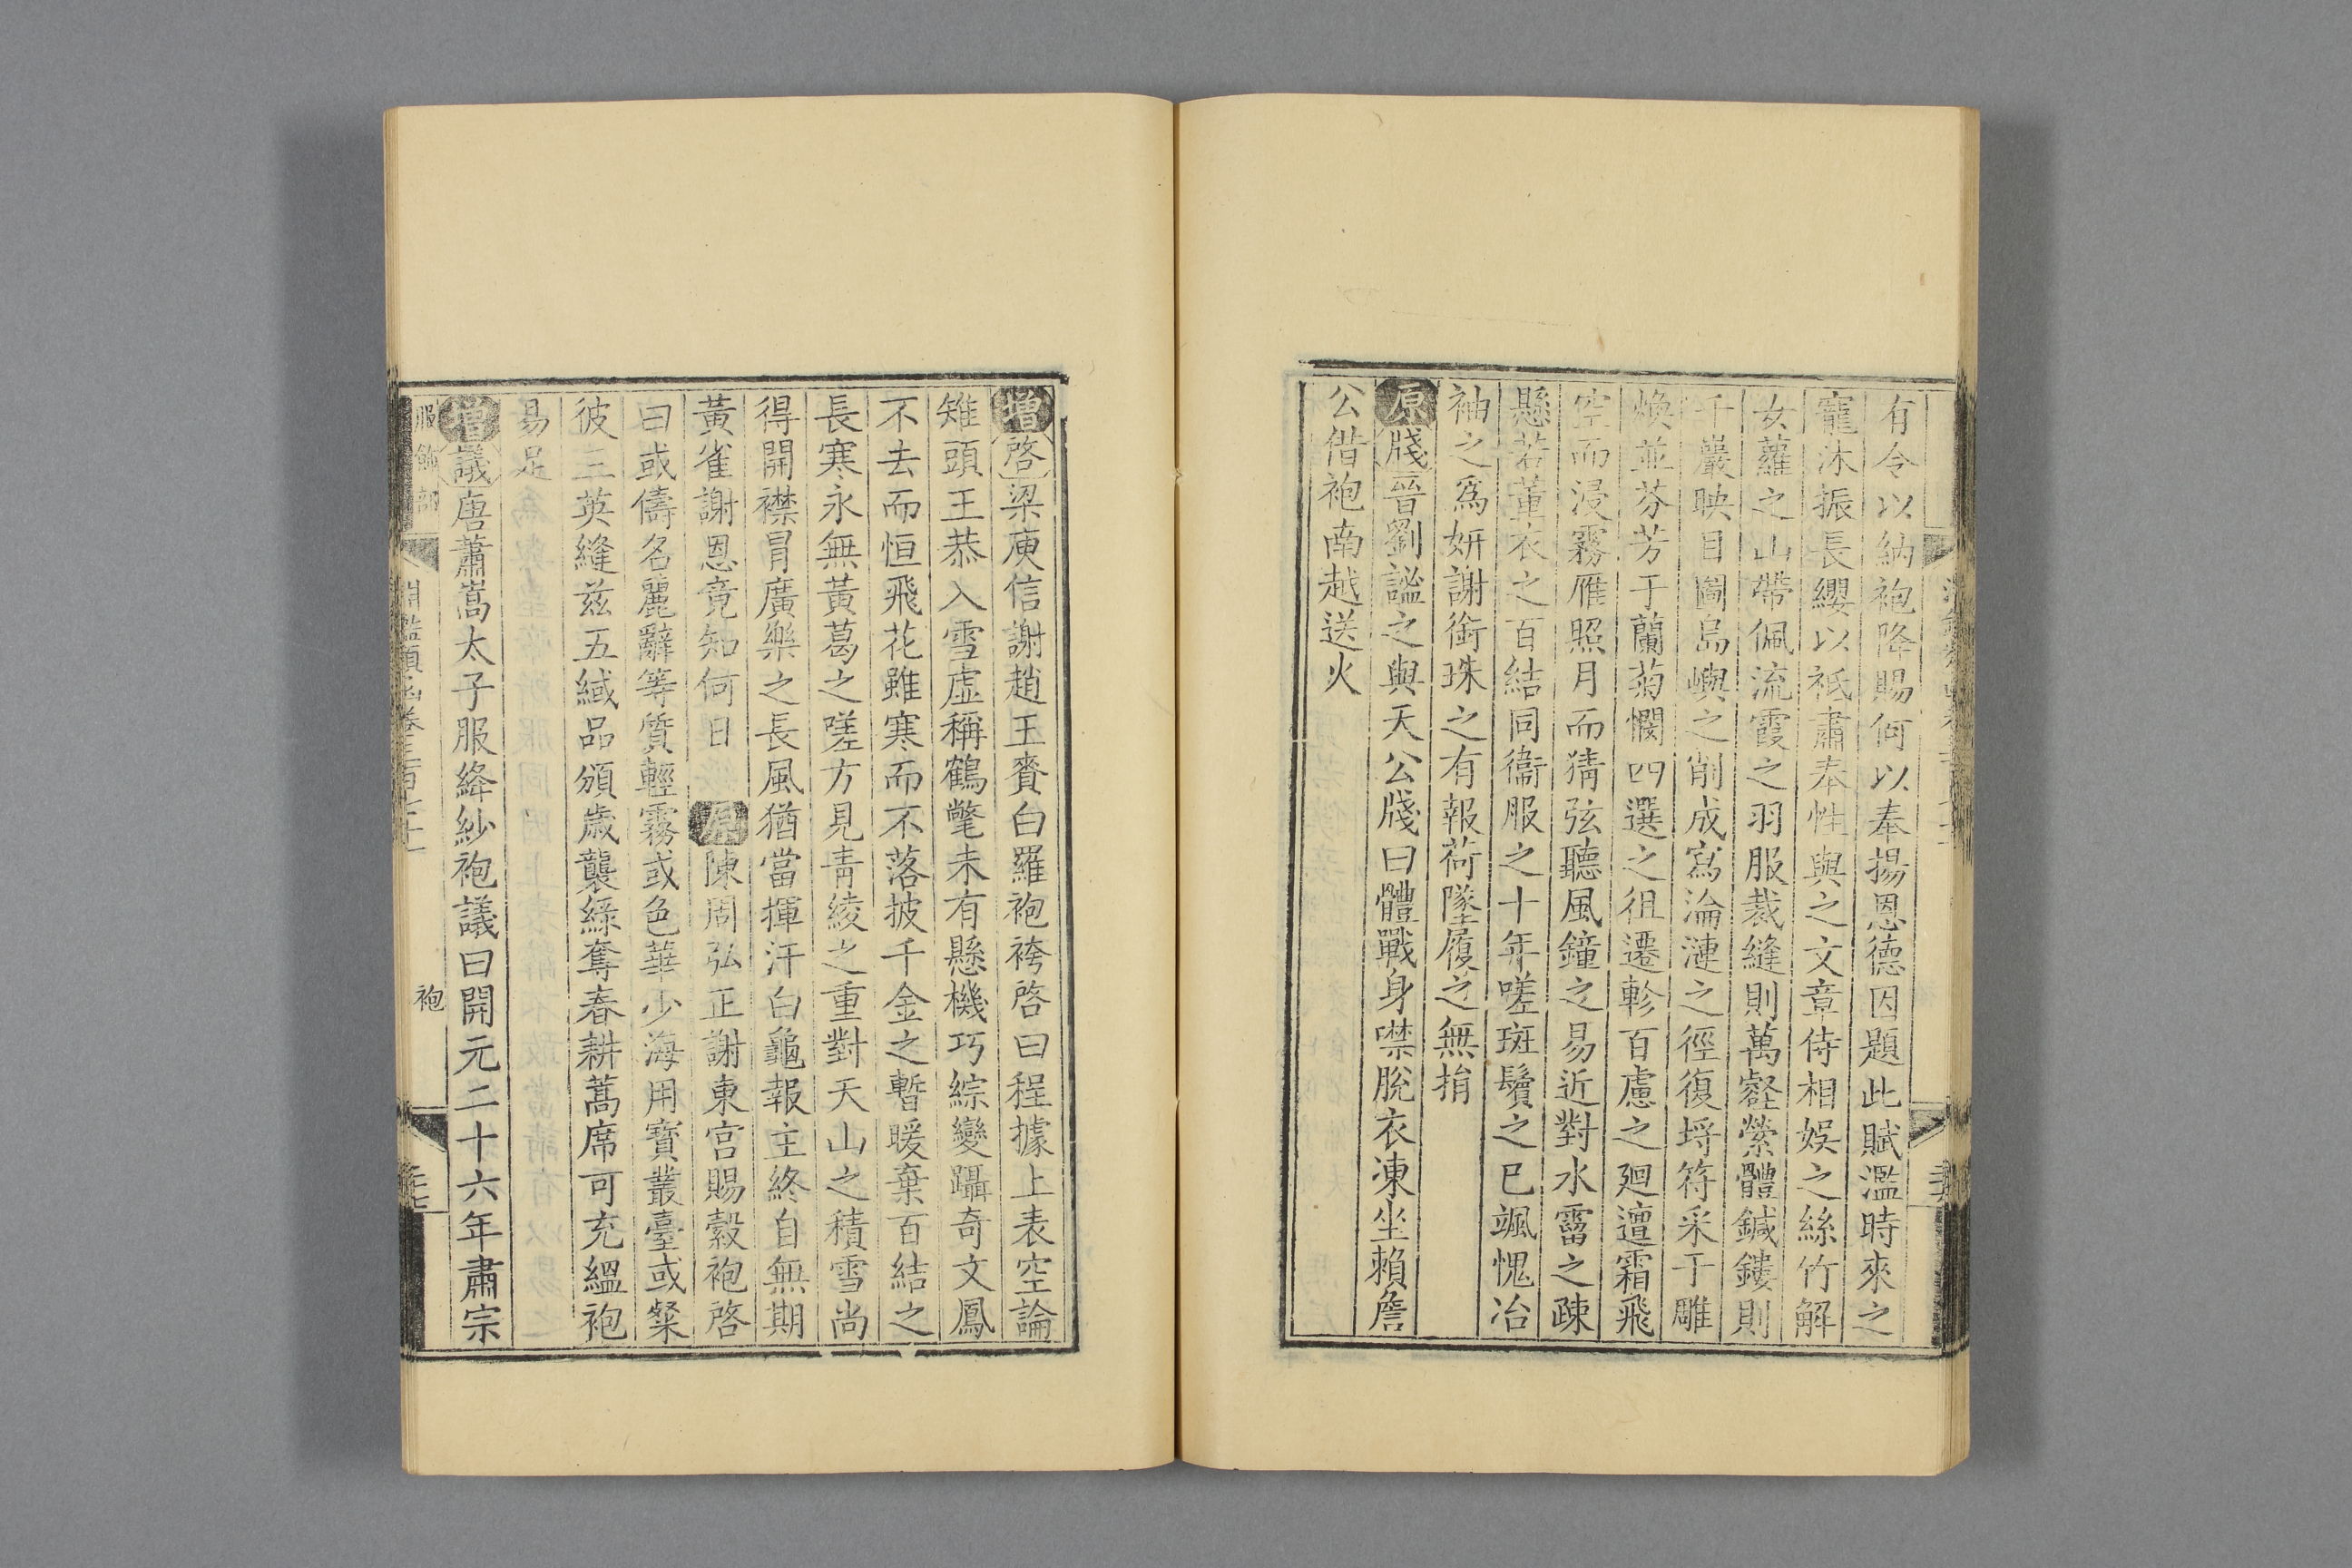 有令以納袍降賜何以奉揚恩德因題此賦濫時來之
寵沐振長纓以祗肅奉性與之文章侍相娛之絲竹解
女蘿之山帶佩流霞之羽服裁縫則萬壑縈體鍼鏤則
千巖映目圖島嶼之削成寫淪漣之徑復埒符采于雕
煥並芬芳于蘭菊憫四選之徂遷軫百慮之廻邅霜飛
空而浸霧雁照月而猜弦聽風鐘之易近對水霤之疎
懸若董衣之百結同衞服之十年嗟斑鬢之巳颯愧冶
袖之爲妍謝銜珠之有報荷墜履之無捐
原牋晉劉謐之與天公牋曰體戰身噤脫衣凍坐賴詹
公借袍南越送火
增啓梁庾信謝趙王賚白羅袍袴啓曰程據上表空論
雉頭王恭入雪虛稱鶴氅未有懸機巧綜變躡奇文鳳
不去而恒飛花雖寒而不落披千金之暫暖棄百結之
長寒永無黃葛之嗟方見青綾之重對天山之積雪尚
得開襟冐廣樂之長風猶當揮汗白龜報主終自無期
黃雀謝恩竟知何日 原陳周弘正謝東宮賜縠袍啓
曰或儔名麗辭等質輕霧或色華少海用寶叢臺或粲
彼三英縫兹五緎品頒歲襲綵奪春耕蒿席可充縕袍
易足
增議唐蕭嵩太子服絳紗袍議曰開元二十六年肅宗
服飾部
袍